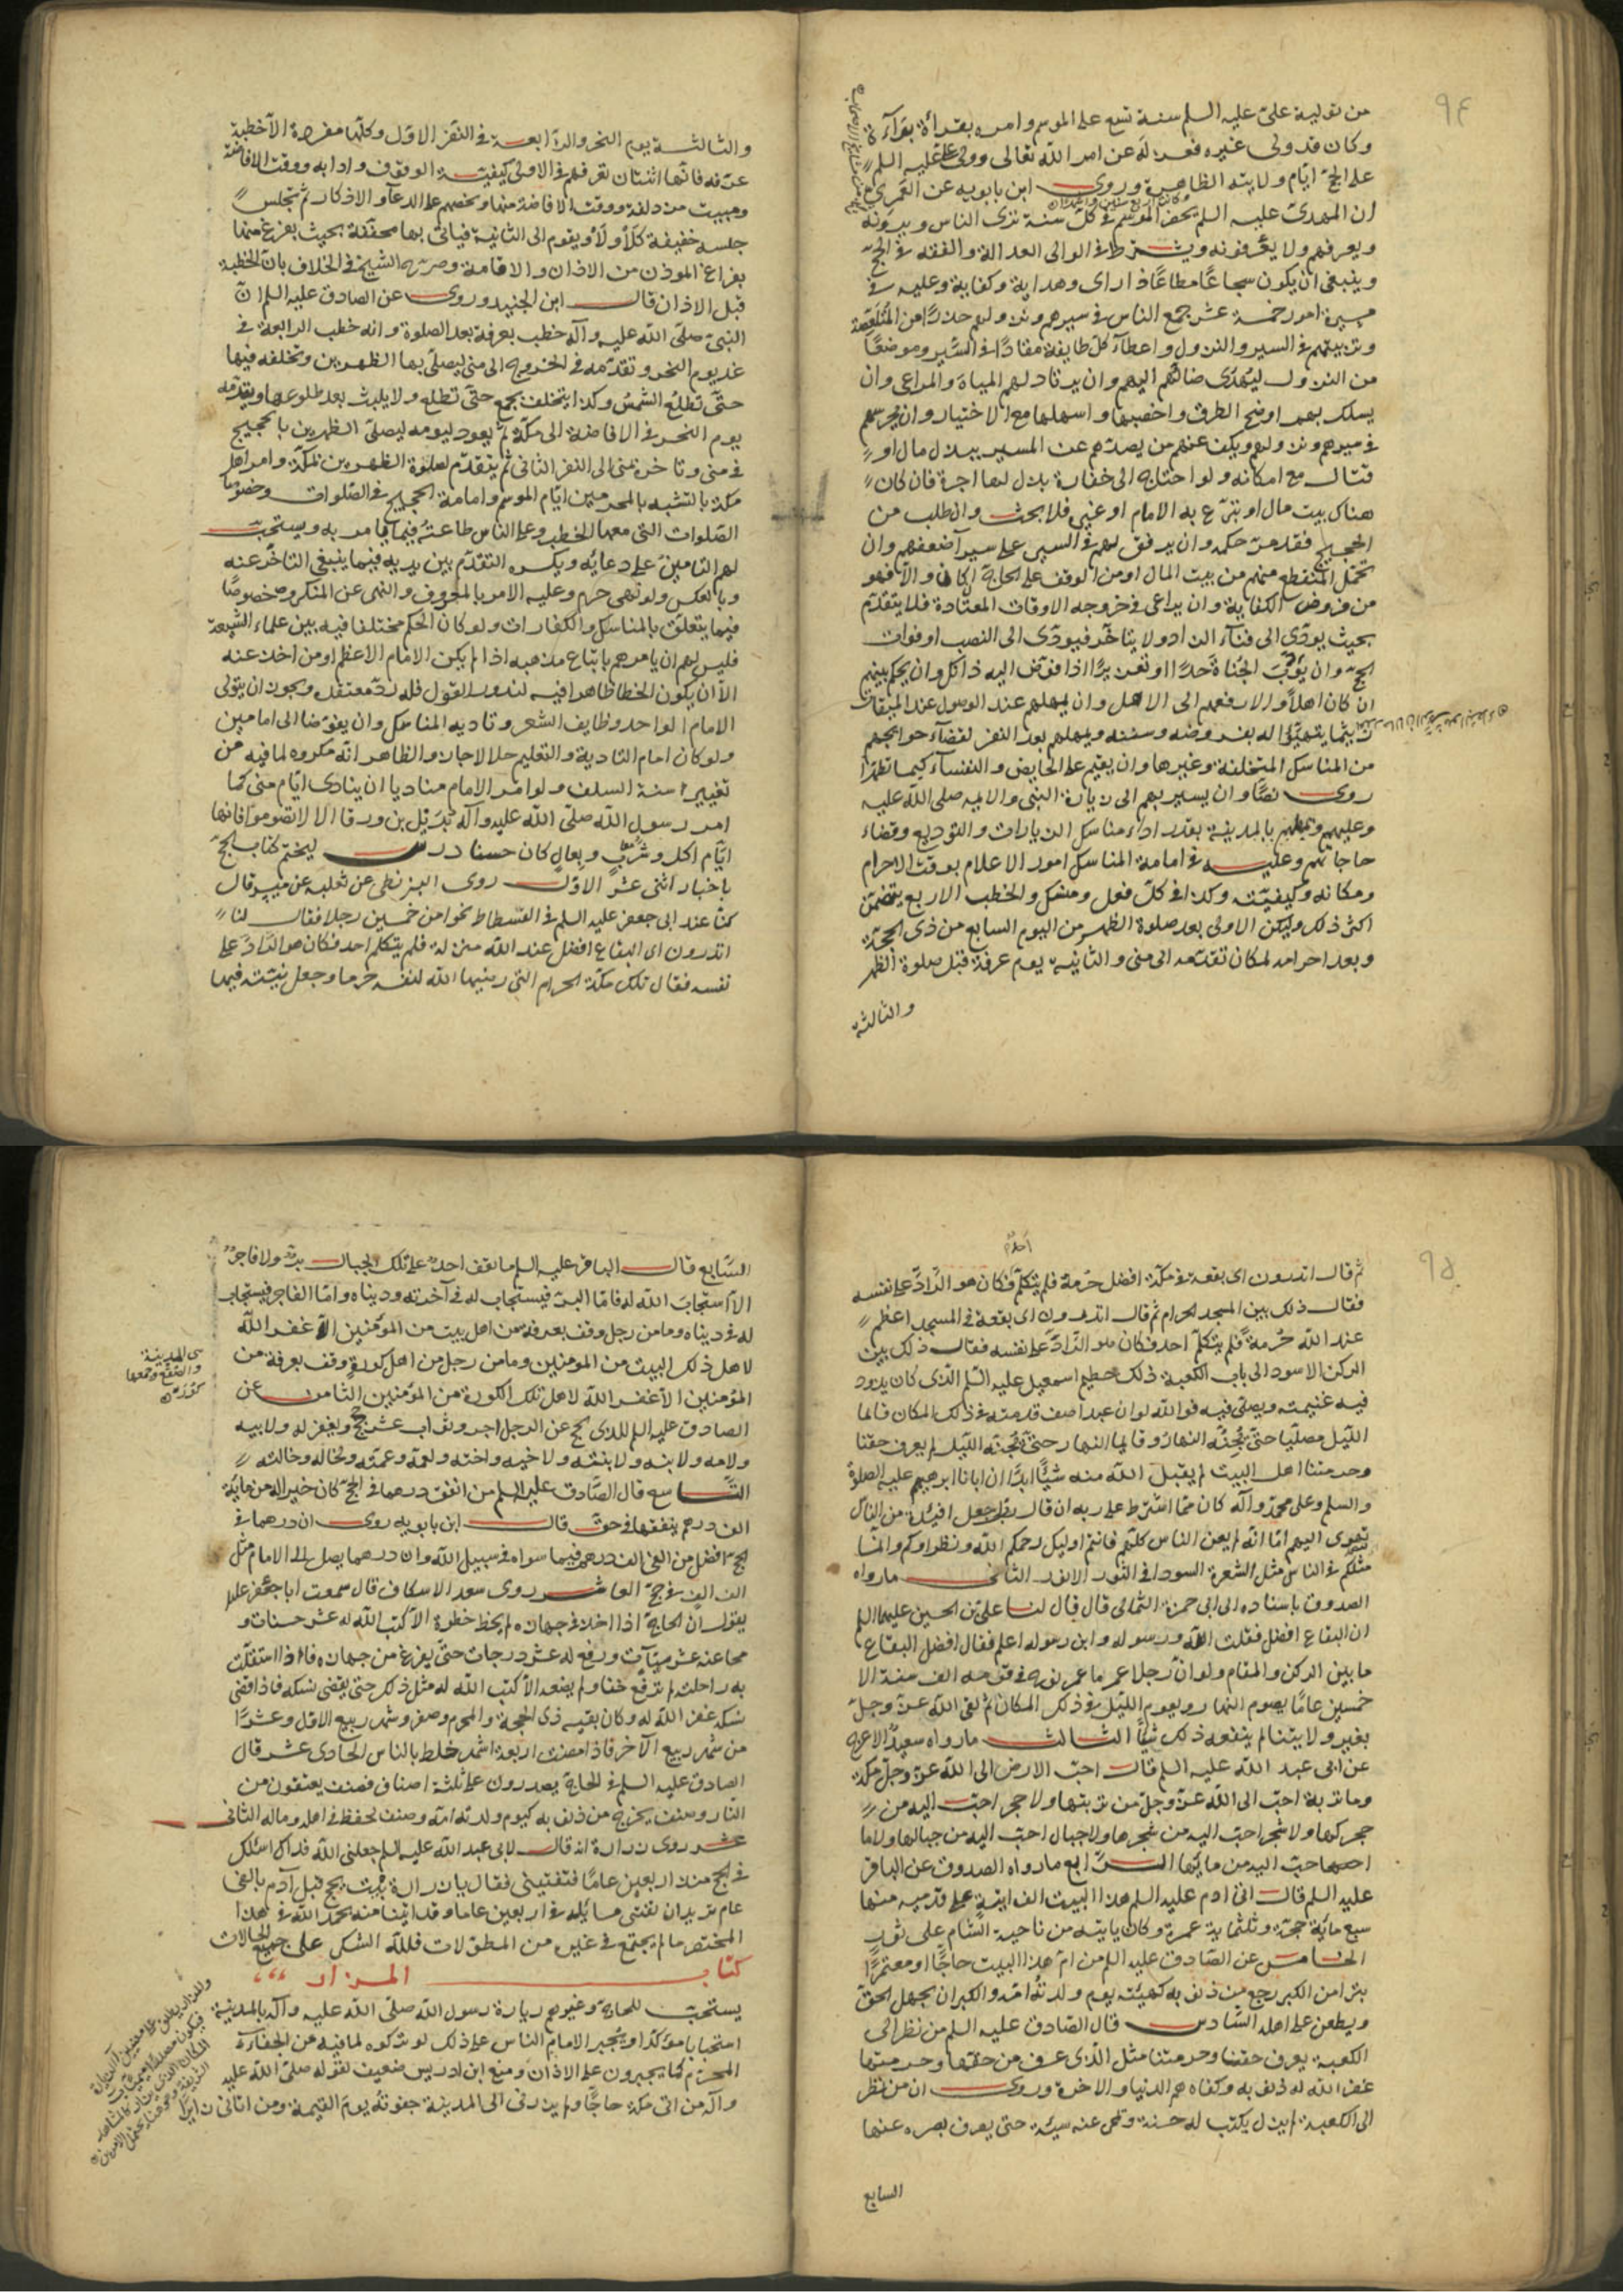 ٩٤
من تولية علىّ عليه السلم سنة تسع على الموسم وامره بقراءة براءة
وكان قد ولى غيره فعزله عن امر الله تعالى وولى على عليه السلم
على الحج ايام ولايته الظاهرة وروى ابن بابويه عن العَمرى
وكانت اربع سنين
ان المهدى عليه السلم يحضر الموسم فى كل سنة يرى الناس ويرونه
ويعرفهم ولا يعرفونه ويشترط فى الوالى العدالة والفقه فى الحج
وينبغى ان يكون شجاعًا مطاعًا ذا راى وهداية وكفاية وعليه فى
مسيره امور خمسة عشر جمع الناس فى سيرهم ونزولهم حذرًا من المتلصّصة
وترتيبهم فى السير والنزول واعطآء كل طايفة مقادًا فى السير وموضعًا
من النزول ليهتدى ضالّهم اليهم وان يرتاد لهم المياه والمراعى وان
يسلك بهم اوضح الطرق واخصبها واسهلها مع الاختيار وان يحرسهم
فى سيرهم ونزولهم ويكف عنهم من يصدّهم عن المسير ببذل مال او
قتال مع امكانه ولو احتاج الى خفارة بذل لها اجرة فان كان
هناك بيت مال او تبرّع به الامام او غيره فلا بحث وان طلب من
الحجيج فقد مرّ حكمه وان يرفق بهم فى السير على سير اضعفهم وان
يحمل المنقطع منهم من بيت المال او من الوقف على الحاج ان كان والا فهو
من فروض الكفاية وان يراعى فى خروجه الاوقات المعتادة فلا يتقدّم
بحيث يودّى الى فنآء الزاد ولا يتاخّر فيودّى الى النصب او فوات
الحج وان يؤدّب الجُناة حدًّا او تعزيرًا اذا فوّض اليه ذلك وان يحكم بينهم
ان كان اهلًا والا رفعهم الى الاهل وان يمهلهم عند الوصول عند الميقات
ريثما يتهيّئوا له بفروضه وسننه ويمهلهم بعد النفر لقضآء حوايجهم
من المناسك المتخلفة وغيرها وان يقيم على الحايض والنفسآء كيما تطهرا
روى نصًّا وان يسير بهم الى زيارة النبى والايمة صلى الله عليه
وعليهم ويمهلهم بالمدينة بقدر اداء مناسك الزيارات والتوديع وقضاء
حاجاتهم وعليه فى امامة المناسك امور الاعلام بوقت الاحرام
ومكانه وكيفيته وكذا فى كل فعل ومنسك والخطب الاربع يتضمّن
اكثر ذلك وليكن الاولى بعد صلوة الظهر من اليوم السابع من ذى الحجة
وبعد احرامه لمكان تقدّمه الى منى والثانية يوم عرفة قبل صلوة الظهر
والثالثة
والثالثة يوم النحر والرابعة فى النفر الاول وكلها مفردة الا خطبة
عرفة فانها اثنتان تعرفهم فى الاولى كيفية الوقوف وادابه ووقت الافاضة
ومبيت مزدلفة ووقت الافاضة منها ويحضهم على الدعآء والاذكار ثم يجلس
جلسة خفيفة كلا ولا ويقوم الى الثانية فياتى بها مخففة بحيث يفرغ منها
بفراغ الموذن من الاذان والاقامة وصرّح الشيخ فى الخلاف بان الخطبة
قبل الاذان قال ابن الجنيد وروى عن الصادق عليه السلم ان
النبى صلى الله عليه وآله خطب بعرفة بعد الصلوة وانه خطب الرابعة فى
غد يوم النحر وتقدّمه فى الخروج الى منى ليصلّى بها الظهرين وتخلفه فيها
حتى تطلع الشمس وكذا يتخلف بجمع حتى تطلع ولا يلبث بعد طلوعها ويتقدّمه
يوم النحر فى الافاضة الى مكة ثم يعود ليومه ليصلى الظهرين بالحجيج
فى منى وتاخره بمنى الى النفر الثانى ثم يتقدّم لصلوة الظهرين بمكة وامر اهل
مكة بالتشبه بالمحرمين ايام الموسم وامامة الحجيج فى الصلوات وخصوصًا
الصلوات التى معها الخطب وعلى الناس طاعته فيما يامر به ويستحب
لهم التامين على دعائه ويكره التقدّم بين يديه فيما ينبغى التاخر عنه
وبالعكس ولو نهى حرم وعليه الامر بالمعروف والنهى عن المنكر وخصوصًا
فيما يتعلق بالمناسك والكفارات ولو كان الحكم مختلفا فيه بين علماء الشيعة
فليس لهم ان يامرهم باتباع مذهبه اذا لم يكن الامام الاعظم او من اخذ عنه
الا ان يكون الخطا ظاهرا فيه لندور القول فله ردّ معتقده ويجوز ان يتولى
الامام الواحد وظايف الشعر وتادية المناسك وان يفوّضا الى امامين
ولو كان امام التادية والتعليم حلالا جاز والظاهر انه مكروه لما فيه من
تغيير سنة السلف ولو امر الامام مناديا ان ينادى ايام منى كما
امر رسول الله صلى الله عليه وآله بديل بن ورقا الا لا تصوموا فانها
ايام اكل وشرب وبعال كان حسنا درس ليختم كتاب الحج
باخبار اثنى عشر الاول روى البزنطى عن ثعلبة عن ميسر قال
كنّا عند ابى جعفر عليه السلم فى الفسطاط نحوا من خمسين رجلا فقال لنا
اتدرون اى البقاع افضل عند الله منزلة فلم يتكلم احد فكان هو الرّادّ على
نفسه فقال تلك مكة الحرام التى رضيها الله لنفسه حرما وجعل بيته فيها
٩٥
احد
ثم قال اتدرون اى بقعة فى مكة افضل حرمة فلم يتكلم فكان هو الرّادّ على نفسه
فقال ذلك بين المسجد الحرام ثم قال اتدرون اى بقعة فى المسجد اعظم
عند الله حرمة فلم يتكلم احد فكان هو الرّادّ على نفسه فقال ذلك بين
الركن الاسود الى باب الكعبة ذلك حطيم اسمعيل عليه السلم الذى كان يذود
فيه غنيمته ويصلى فيه فوالله لو ان عبدا صف قدميه فى ذلك المكان قائما
الليل مصليا حتى يجنّه النهار وقايما النهار حتى يجنّه الليل لم يعرف حقنا
وحرمتنا اهل البيت لم يقبل الله منه شيئًا ابدًا ان ابانا ابرهيم عليه الصلوة
والسلم وعلى محمد وآله كان ممّا اشترط على ربه ان قال رب اجعل افئدة من الناس
تهوى اليهم امّا انه لم يعن الناس كلهم فانتم اوليك رحمكم الله ونظراوكم وانّما
مثلكم فى الناس مثل الشعرة السودا فى الثور الانور الثانى مارواه
الصدوق باسناده الى ابى حمزة الثمالى قال قال لنا على بن الحسين عليهما السلم
اىّ البقاع افضل فقلت الله ورسوله وابن رسوله اعلم فقال افضل البقاع
ما بين الركن والمقام ولو انّ رجلا عمر ما عمر نوح فى قومه الف سنة الا
خمسين عامًا يصوم النهار ويقوم الليل فى ذلك المكان ثم لقى الله عزّ وجلّ
بغير ولايتنا لم ينفعه ذلك شيئًا الثالث مارواه سعيد الاعرج
عن ابى عبد الله عليه السلم قال احبّ الارض الى الله عزّ وجلّ مكة
وما تربة احبّ الى الله عزّ وجلّ من تربتها ولا حجر احبّ اليه من
حجرها ولا شجر احبّ اليه من شجرها ولا جبال احبّ اليه من جبالها ولا ما
احبّ اليه من مايها الرّابع مارواه الصدوق عن الباقر
عليه السلم قال اتى ادم عليه السلم هذا البيت الف اتية على قدميه منها
سبع ماية حجة وثلثماية عمرة وكان ياتيه من ناحية الشام على ثور
الخامس عن الصّادق عليه السلم من ام هذا البيت حاجًّا او معتمرًا
مبرّا من الكبر رجع من ذنوبه كهيئته يوم ولدته امّه والكبر ان يجهل الحقّ
ويطعن على اهله السّادس قال الصّادق عليه السلم من نظر الى
الكعبة يعرف حقنا وحرمتنا مثل الذى عرف من حقها وحرمتها
غفر الله له ذنوبه وكفاه هم الدنيا والاخرة وروى ان من نظر
الى الكعبة لم يزل يكتب له حسنة وتمحى عنه سيئة حتى يصرف بصره عنها
السابع
السّابع قال الباقر عليه السلم ما يقف احد على تلك الجبال برّ ولا فاجر
الا استجاب الله له فامّا البرّ فيستجاب له فى آخرته ودنياه وامّا الفاجر فيستجاب
له فى دنياه وما من رجل وقف بعرفة من اهل بيت من المؤمنين الا غفر الله
لاهل ذلك البيت من المومنين وما من رجل من اهل كورة وقف بعرفة من
المؤمنين الا غفر الله لاهل تلك الكورة من المؤمنين الثامن عن
الصادق عليه السلم للذى يحج عن الرجل اجر وثواب عشر حجج ويغفر له ولابيه
ولامه ولابنه ولابنته ولاخيه واخته ولعمّه وعمّته ولخاله وخالته
التّاسع قال الصّادق عليه السلم من انفق درهما فى الحج كان خيرا له من ماية
الف درهم ينفقها فى حقّ قال ابن بابويه روى ان درهما فى
الحج افضل من الفى الف درهم فيما سواه فى سبيل الله وان درهما يصل الى الامام مثل
الف الف فى حج العاشر روى سعد الاسكاف قال سمعت ابا جعفر عليه السلم
يقول ان الحاج اذا اخذ فى جهازه لم يخط خطوة الا كتب الله له عشر حسنات و
محا عنه عشر سيّآت ورفع له عشر درجات حتى يفرغ من جهازه فاذا استقلّت
به راحلته لم ترفع خفا ولم تضعه الا كتب الله له مثل ذلك حتى يقضى نسكه فاذا قضى
نسكه غفر الله له وكان بقية ذى الحجة والمحرم وصفر وشهر ربيع الاول وعشرًا
من شهر ربيع الآخر فاذا مضت اربعة اشهر خلط بالناس الحادى عشر قال
الصادق عليه السلم الحاج يصدرون على ثلثة اصناف فصنف يعتقون من
النار وصنف يخرج من ذنوبه كيوم ولدته امّه وصنف يحفظ فى اهله وماله الثانى
عشر روى زرارة انه قال لابى عبد الله عليه السلم جعلنى الله فداك اسئلك
فى الحج منذ اربعين عامًا فتفتينى فقال يا زرارة بيت يحج قبل آدم بالفى
عام تريد ان تفنى مسائله فى اربعين عاما وقد اتينا منه بحمد الله فى هذا
المختصر ما لم يجتمع فى غيره من المطولات فلله الشكر على جميع الحالات
كتاب المزار
يستحب للحاج وغيرهم زيارة رسول الله صلى الله عليه وآله بالمدينة
استحبابا مؤكّدًا ويُجبر الامام الناس على ذلك لو تركوه لما فيه من الجفاء
المحرّم كما يجبرون على الاذان ومنع ابن ادريس ضعيف لقوله صلى الله عليه
وآله من اتى مكة حاجًّا ولم يزرنى الى المدينة جفوته يوم القيمة ومن اتانى زايرًا
هى المدينة
والصقع وجمعها
كُوَر